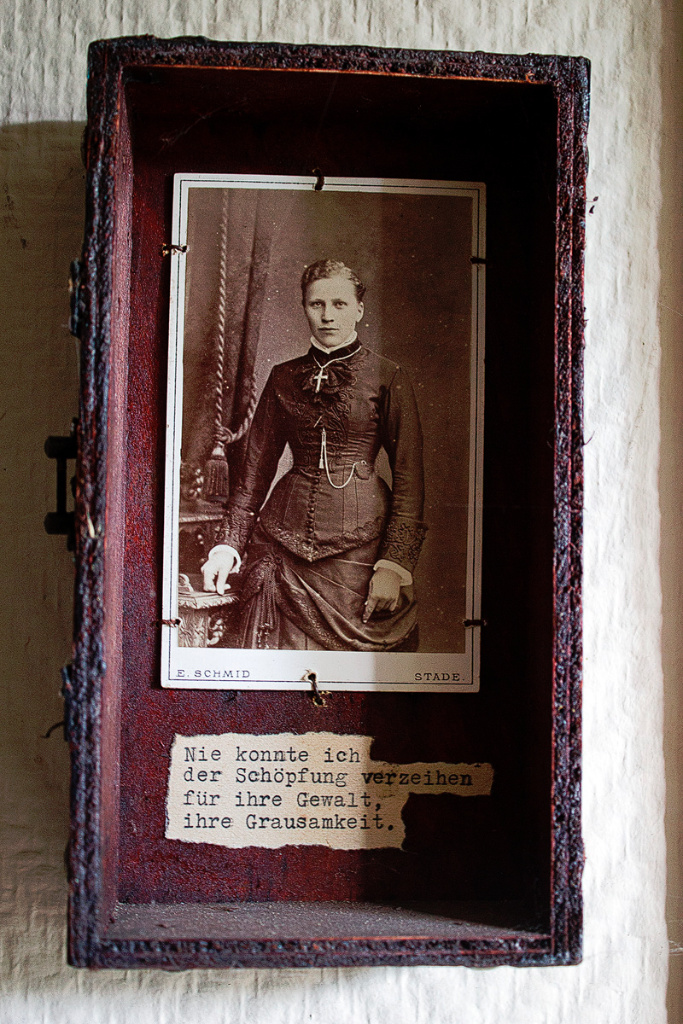 E. SCHMID STADE.
Nie konnte ich
der Schöpfung verzeihen
für ihre Gewalt,
ihre Grausamkeit.